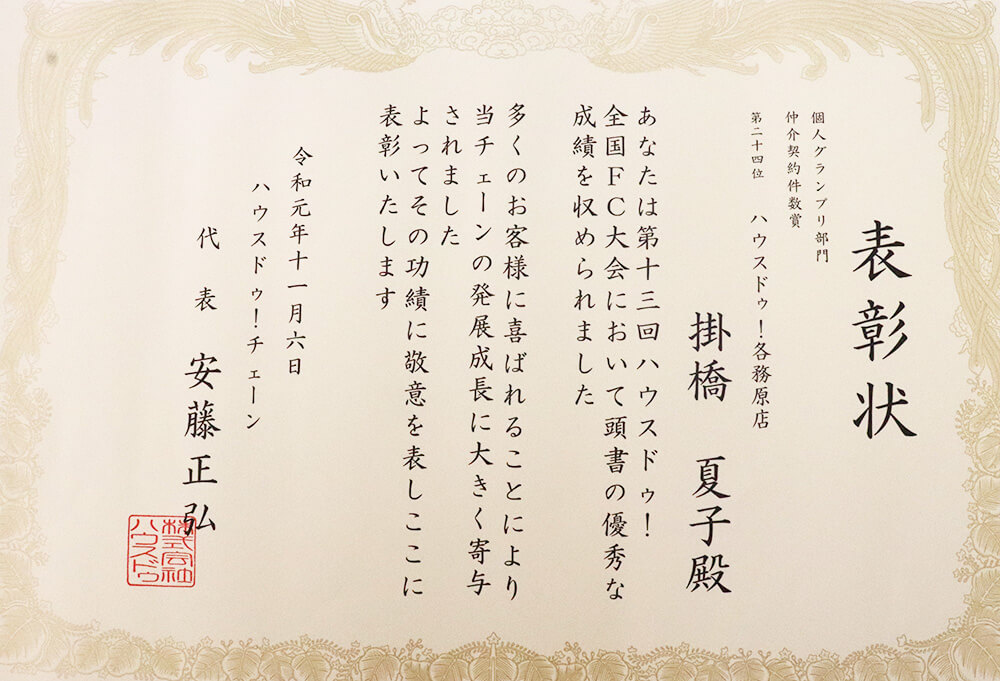 表彰状
個人グランプリ部門
仲介契約件数賞
第二十四位 ハウスドゥ！各務原店
掛橋 夏子殿
あなたは第十三回ハウスドゥ！
全国ＦＣ大会において頭書の優秀な
成績を収められました
多くのお客様に喜ばれることにより
当チェーンの発展成長に大きく寄与
されました
よってその功績に敬意を表しここに
表彰いたします
令和元年十一月六日
ハウスドゥ！チェーン
代表 安藤正弘
株式会社
ハウスドゥ